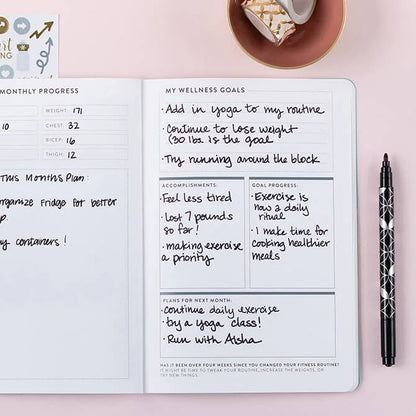 MONTHLY PROGRESS
WEIGHT: 171
10
CHEST: 32
BICEP: 16
THIGH: 12
This Months Plan:
organize Fridge for better
containers!
MY WELLNESS GOALS
• Add in yoga to my routine
• Continue to lose weight
(30 lbs. is the goal
• Try running around the block
ACCOMPLISHMENTS:
• Feel less tired
• Lost 7 pounds
so far!
• making exercise
a priority
GOAL PROGRESS:
• Exercise is
now a daily
ritual
• I make time for
cooking healthier
meals
PLANS FOR NEXT MONTH:
• continue daily exercise
• try a yoga class!
• Run with Aisha
HAS IT BEEN OVER FOUR WEEKS SINCE YOU CHANGED YOUR FITNESS ROUTINE?
IT MIGHT BE TIME TO TWEAK YOUR ROUTINE, INCREASE THE WEIGHTS, OR
TRY NEW THINGS.